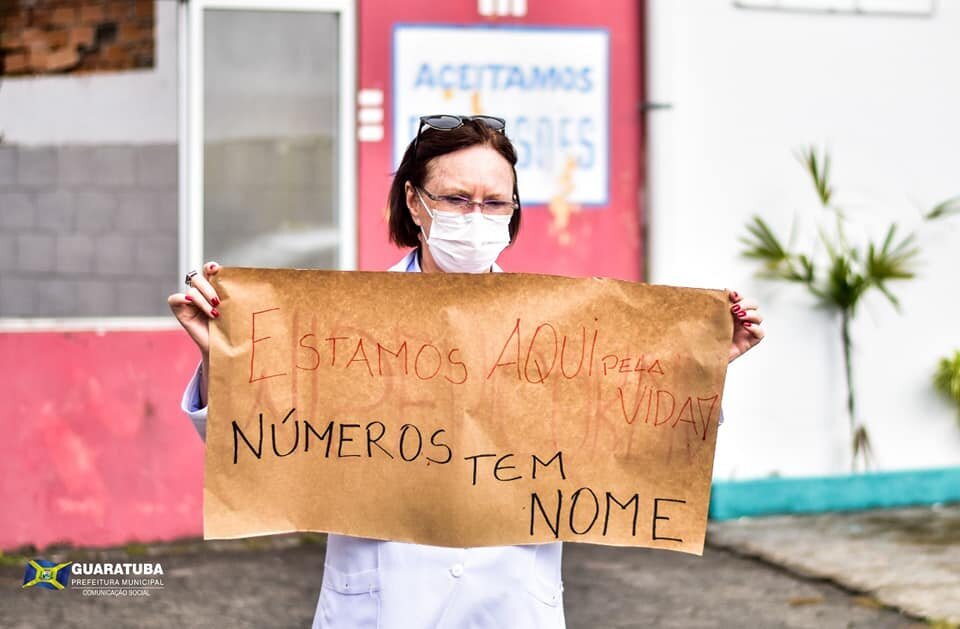 ACEITAMOS
ESTAMOS AQUI PELA
VIDA
NÚMEROS TEM
NOME
GUARATUBA
PREFEITURA MUNICIPAL
COMUNICAÇÃO SOCIAL